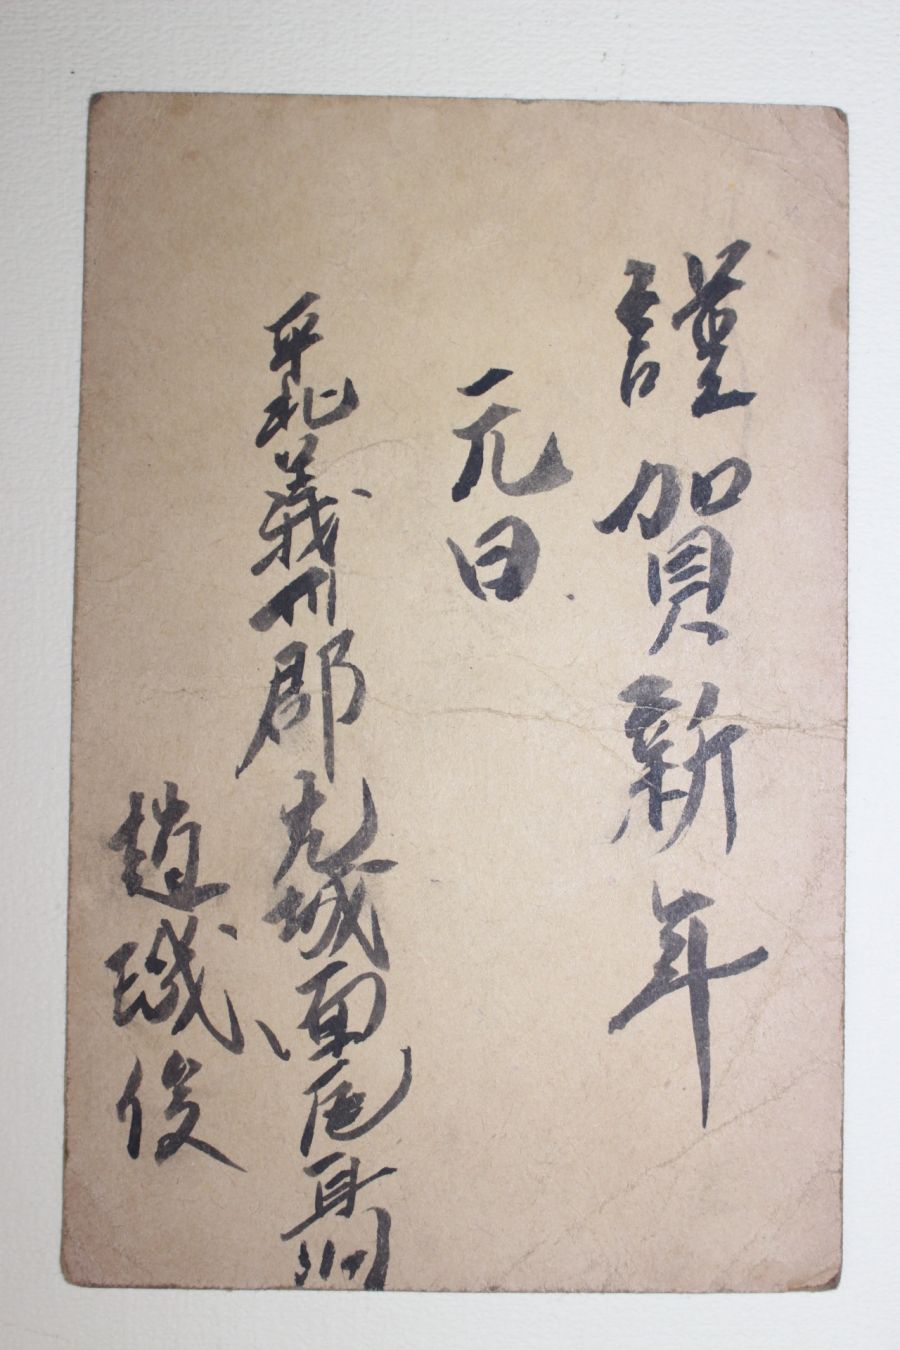 謹賀新年
元日
平北義州郡光城面尾耳洞
趙珹俊